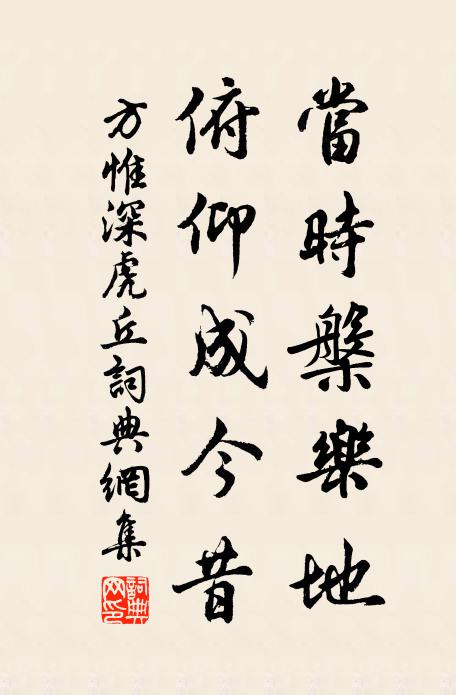 當時槃樂地
俯仰成今昔
方惟深虎丘詞典網集
詞典網印